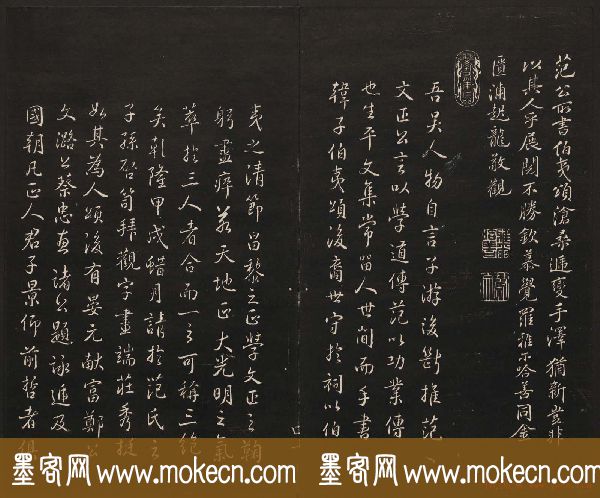 范公所書伯夷頌滄桑遞變手澤猶新豈非
以其人乎展閱不勝欽慕覺羅雅尔哈善同金
匱浦起龍敬觀
吾吴人物自言子游後斷推范
文正公言以學道傳范以功業傳
也生平文集常留人世間而手書
韓子伯夷頌後裔世守於祠以伯
夷之清節昌黎之正學文正之鞠
躬盡瘁若天地正大光明之氣
萃於三人者合而一之可稱三絶
矣乾隆甲戌蜡月請於范氏之
子孫啓笥拜觀字畫端莊秀挺
如其為人頌後有晏元献富鄭公
文潞公蔡忠惠諸公題詠遞及
國朝凡正人君子景仰前哲者俱
墨客网 www.mokecn.com 墨客网 www.mokecn.com